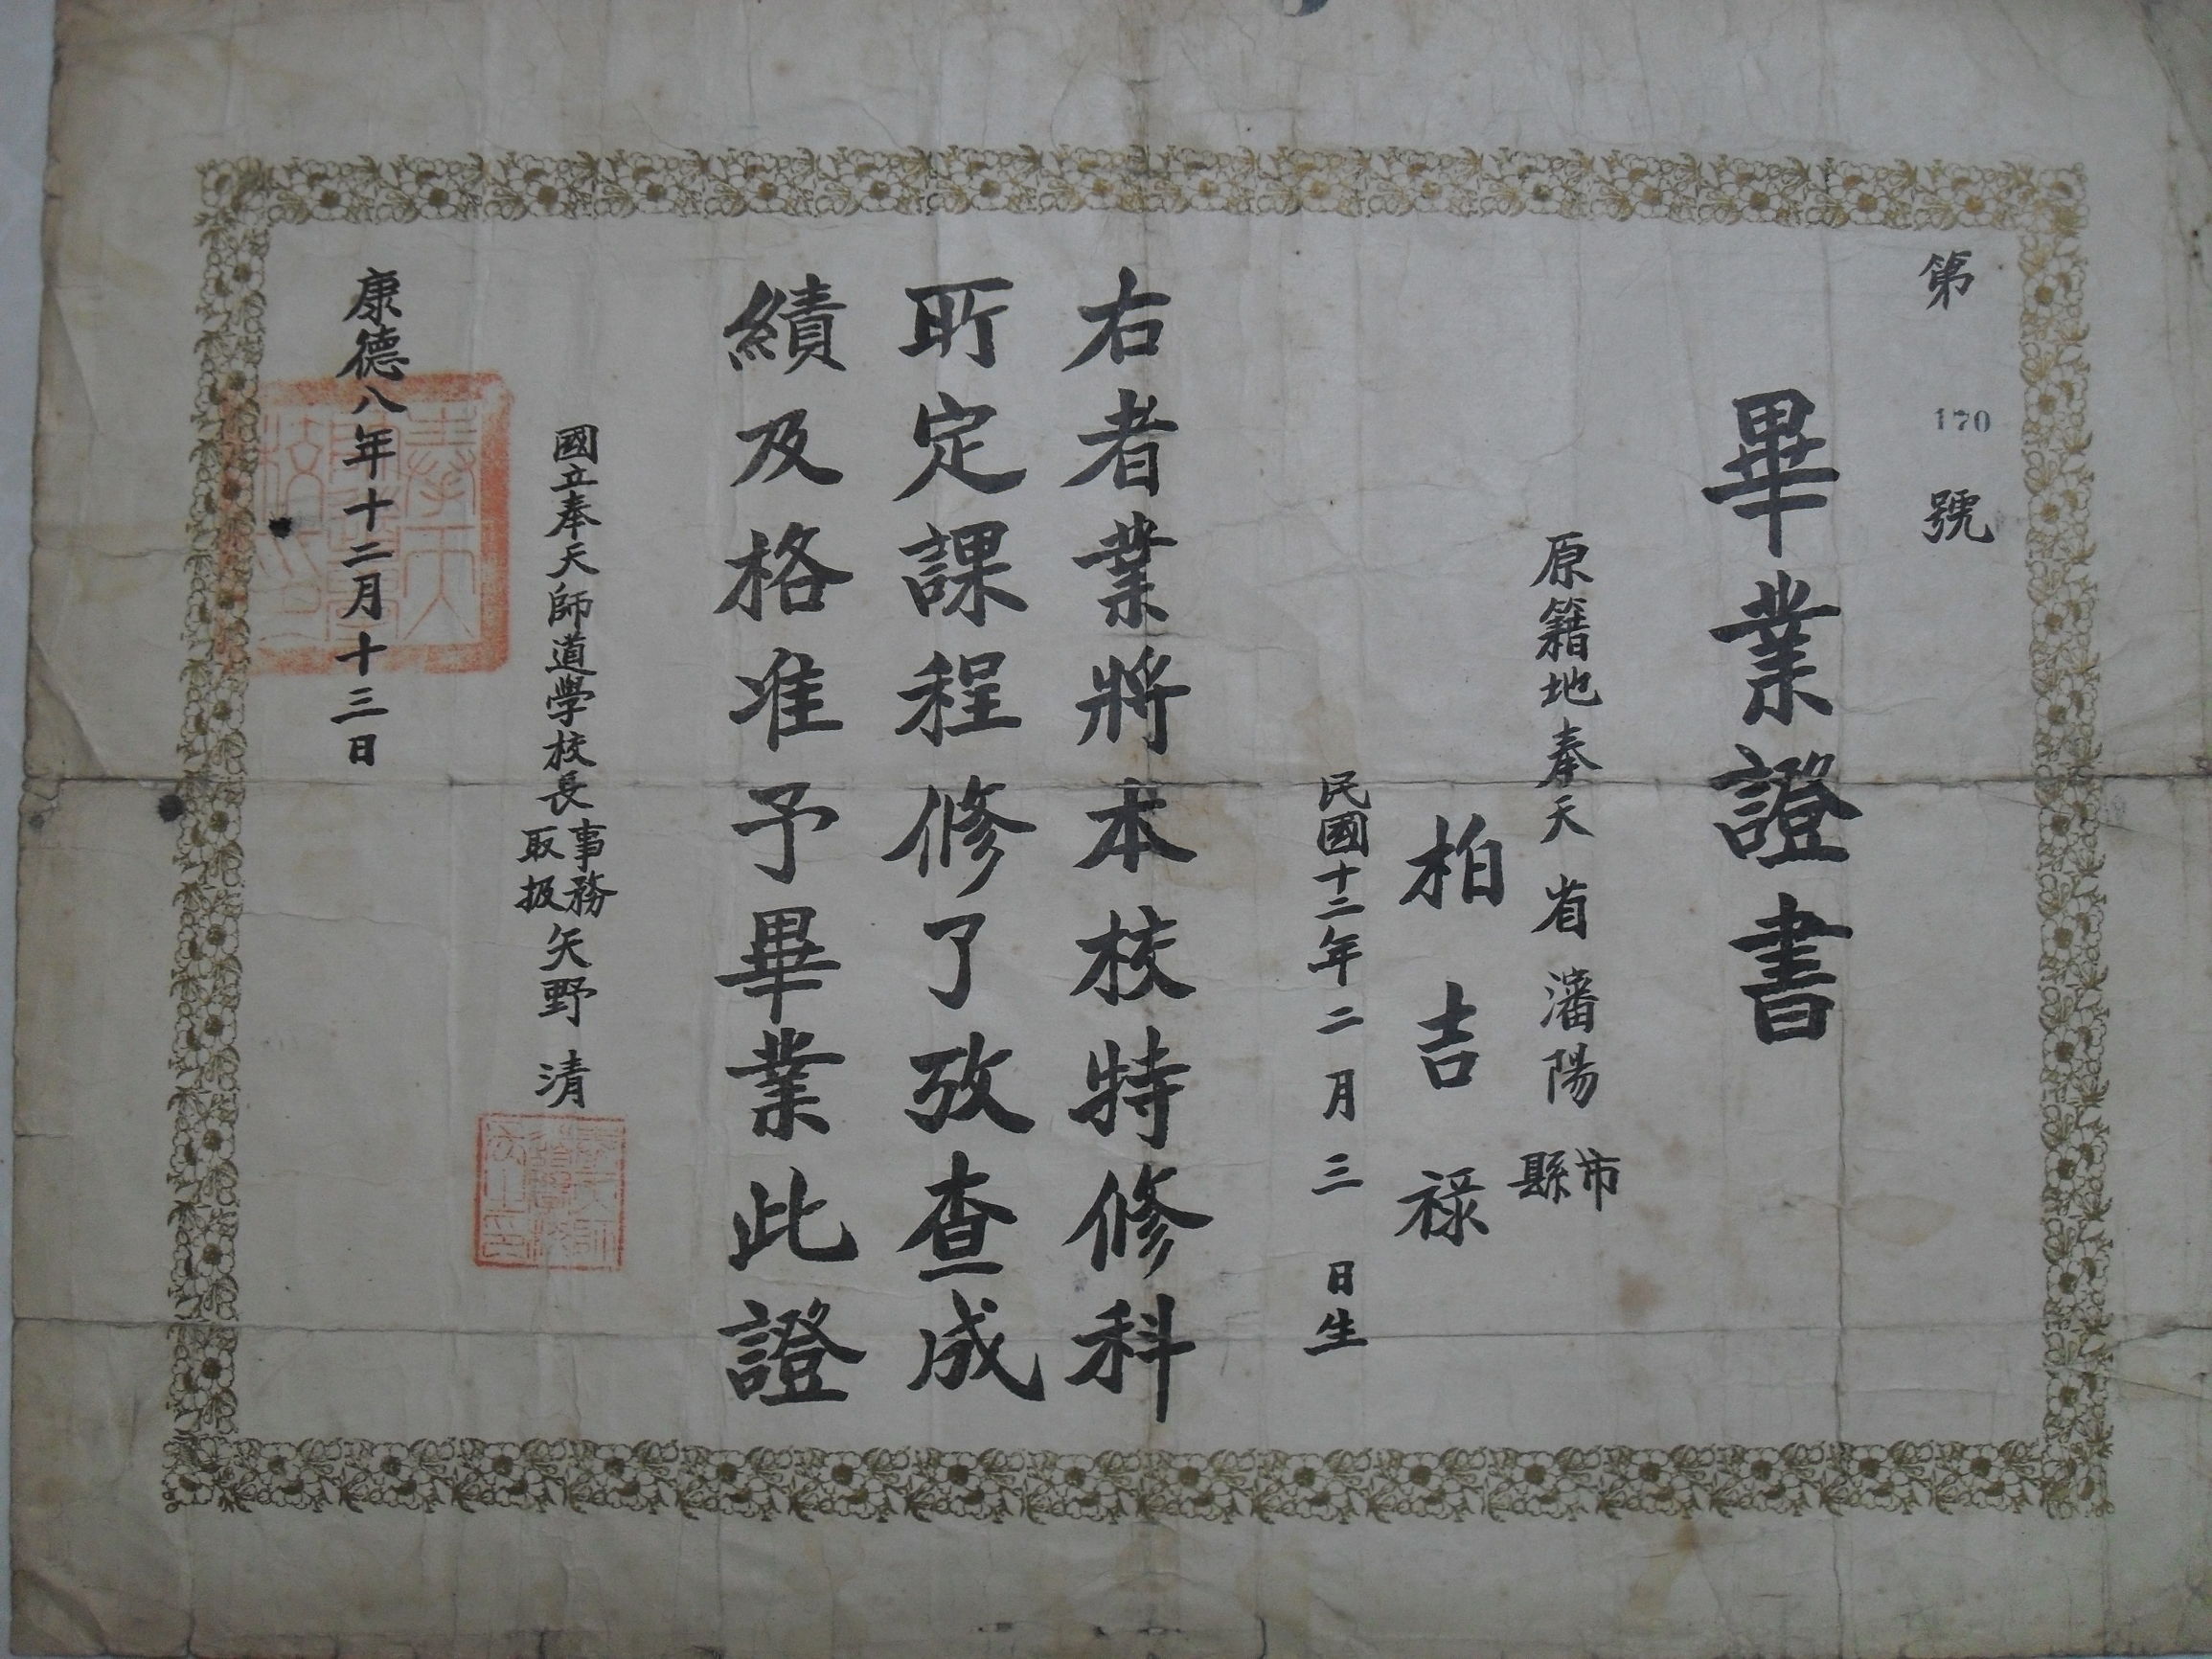 第170號
畢業證書
原籍地奉天省瀋陽市縣
柏吉祿
民國十二年二月三日生
右者業將本校特修科
所定課程修了攷查成
績及格准予畢業此證
國立奉天師道學校長事務取扱矢野清
康德八年十二月十三日